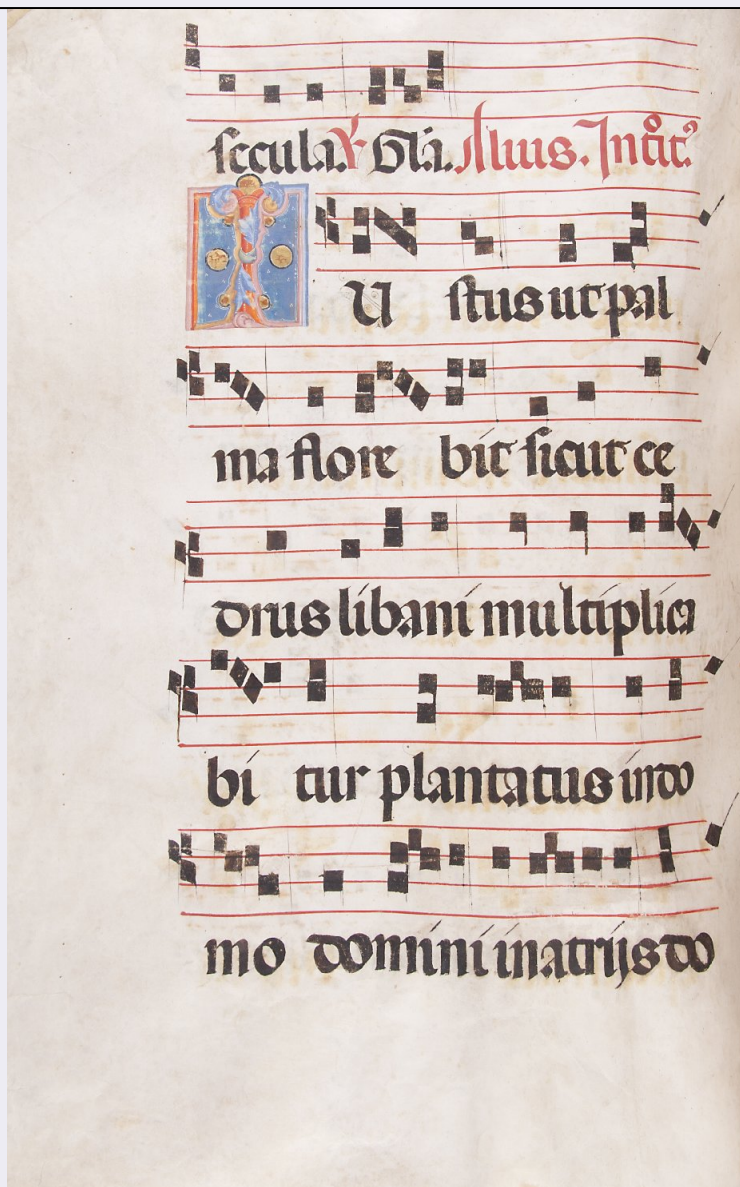 secula. ℣. Gl̄a. Alius. Intʼoit.
IU stus ut pal
ma flore bit sicut ce
drus libani multiplica
bi tur plantatus in do
mo domini in atrijs do